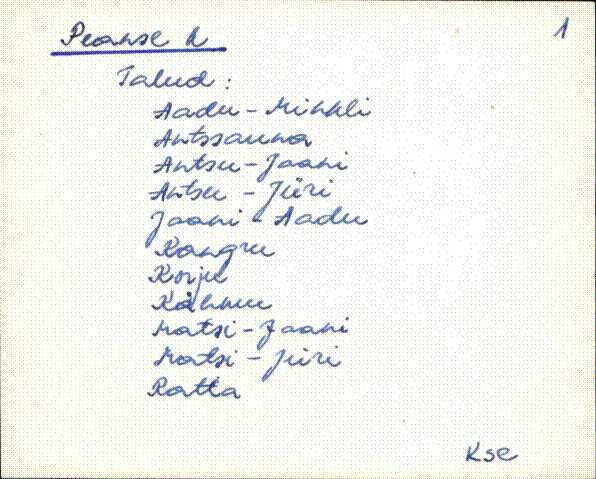 Peanse k
1
Talud:
Aadu-Mihkli
Antssauna
Antsu-Jaani
Antsu - Jüri
Jaani - Aadu
Kangru
Korju
Kähmu
Matsi-Jaani
Matsi - Jüri
Ratta
Kse